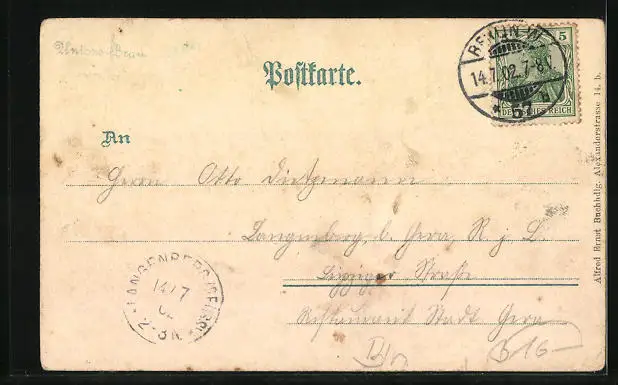 Postkarte.
BERLIN W.
14.7.02.7-8V.
* 57 b
5
DEUTSCHES REICH
An
Herrn Otto Dietzmann
Langenberg, b. Gera R. j. L.
Leipziger Straße
Restaurant Stadt Gera
LANGENBERG (REUSS)
14/7
02
2-3N
B16
Alfred Ernst Buchhdlg. Alexanderstrasse 14. b.